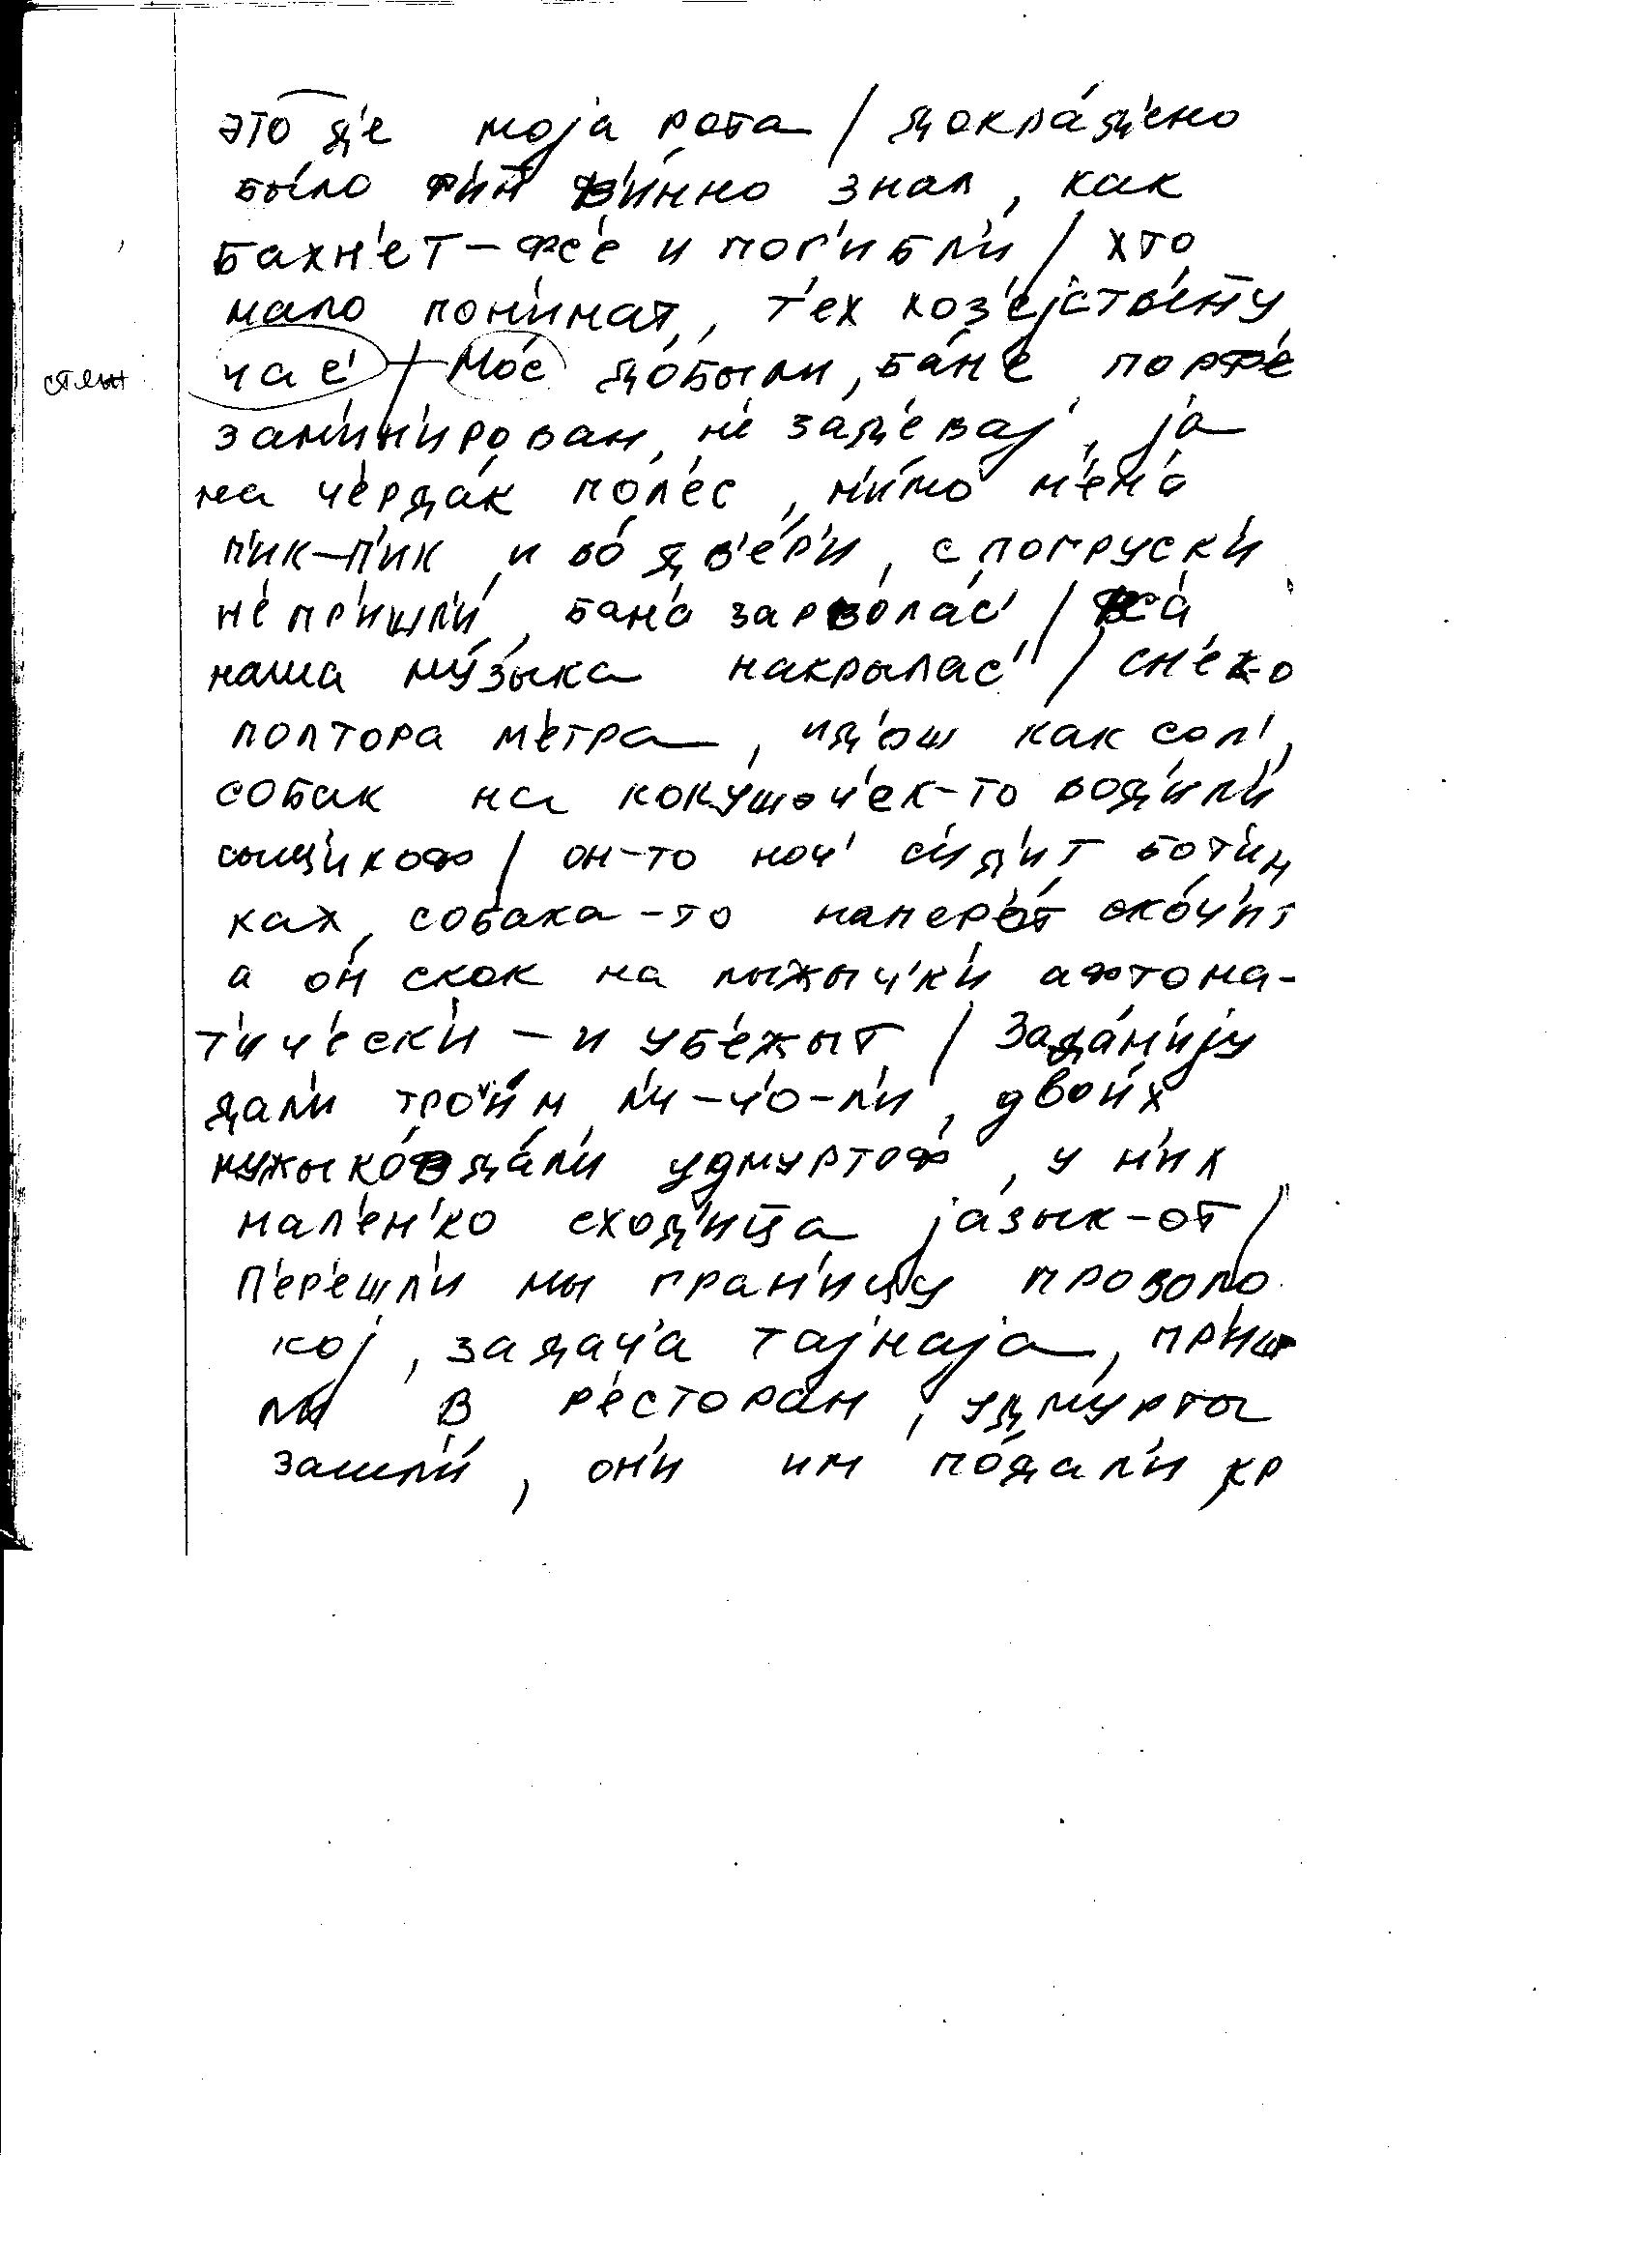 это д'е моја рота / докла́д'ено
было фин в'инно знал, как
бахн'ет – фс'е и пог'ибл'и / хто
мало пон'имат, т'ех хоз'ејств'ину
час' / Мос до́были, бан'е порфе
зам'ин'ирован, н'е зад'евај, ја
на ч'ердак пол'ес, м'имо м'ен'а
п'ик–п'ик и во дв'ер'и, с погруски
н'е пр'ишл'и, бан'а зарволас' / вс'а
наша музыка накрылас' / сн'ежо
полтора м'етра, ид'ош как сол',
собак на кокушоч'ек-то вод'ил'и
сыщ'икоф / он-то ноч' с'ид'ит бот'ин
ках, собака-то напер'от скоч'ит
а он скок на лыжыч'к'и афтома-
т'ич'еск'и – и уб'ежыт / Задан'ију
дал'и троим л'и-ч'о-л'и, двоих
мужыков дал'и удмуртоф, у н'их
мал'ен'ко сход'ица јазык-от /
П'ер'ешл'и мы гран'ицу проволо
кој, задач'а тајнаја, пр'иш
л'и в р'есторан, удмурты
зашл'и, он'и им подал'и кр